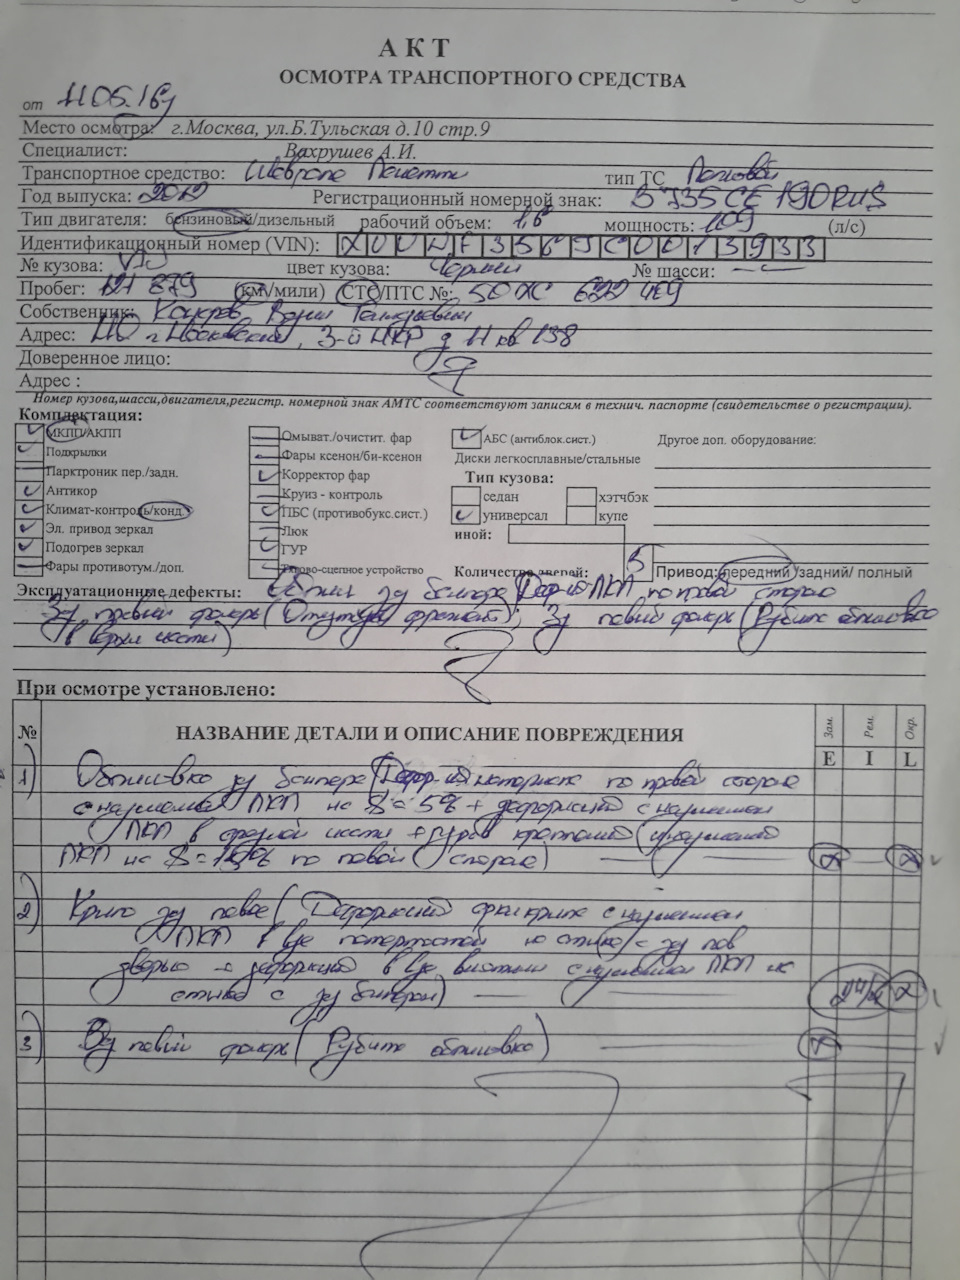 АКТ
ОСМОТРА ТРАНСПОРТНОГО СРЕДСТВА
от 11.05.16г
Место осмотра: г.Москва, ул.Б.Тульская д.10 стр.9
Специалист: Вахрушев А.И.
Транспортное средство: Шевроле Лачетти тип ТС Легковой
Год выпуска: 2012 Регистрационный номерной знак: В 735 СЕ 190RUS
Тип двигателя: бензиновый/дизельный рабочий объем: 1,6 мощность: 109 (л/с)
Идентификационный номер (VIN):
№ кузова: VIN цвет кузова: Черный № шасси: —
Пробег: 121 879 (км/мили) СТС/ПТС №: 50 ХС 622 429
Собственник:
Адрес: МО г Московский, 3-й МКР д 11 кв 138
Доверенное лицо:
Адрес :
Номер кузова,шасси,двигателя,регистр. номерной знак АМТС соответствуют записям в технич. паспорте (свидетельстве о регистрации).
Комплектация:
МКПП/АКПП
Подкрылки
Парктроник пер./задн.
Антикор
Климат-контроль/конд.
Эл. привод зеркал
Подогрев зеркал
Фары противотум./доп.
Омыват./очистит. фар
Фары ксенон/би-ксенон
Корректор фар
Круиз - контроль
ПБС (противобукс.сист.)
Люк
ГУР
Тягово-сцепное устройство
АБС (антиблок.сист.)
Диски легкосплавные/стальные
Тип кузова:
седан хэтчбэк
универсал купе
иной:
Количество дверей: 5
Другое доп. оборудование:
Привод: передний /задний/ полный
Эксплуатационные дефекты: зд бампера ЛКП по правой стороне
Зд правый фонарь ( ); Зд левый фонарь (
в верхн части)
При осмотре установлено:
№ НАЗВАНИЕ ДЕТАЛИ И ОПИСАНИЕ ПОВРЕЖДЕНИЯ Зам. Рем. Окр.
E I L
1) Облицовка зд бампера ( материала по правой стороне
с нарушением ЛКП на S = 5% + деформация с нарушением
ЛКП в части +
ЛКП на S = по левой стороне)
2) Крыло зд левое (Деформация крыла с нарушением
ЛКП в виде потертостей на стыке с зд лев
дверью + деформация в виде вмятины с нарушением ЛКП на
стыке с зд бампером)
3) Зд левый фонарь (